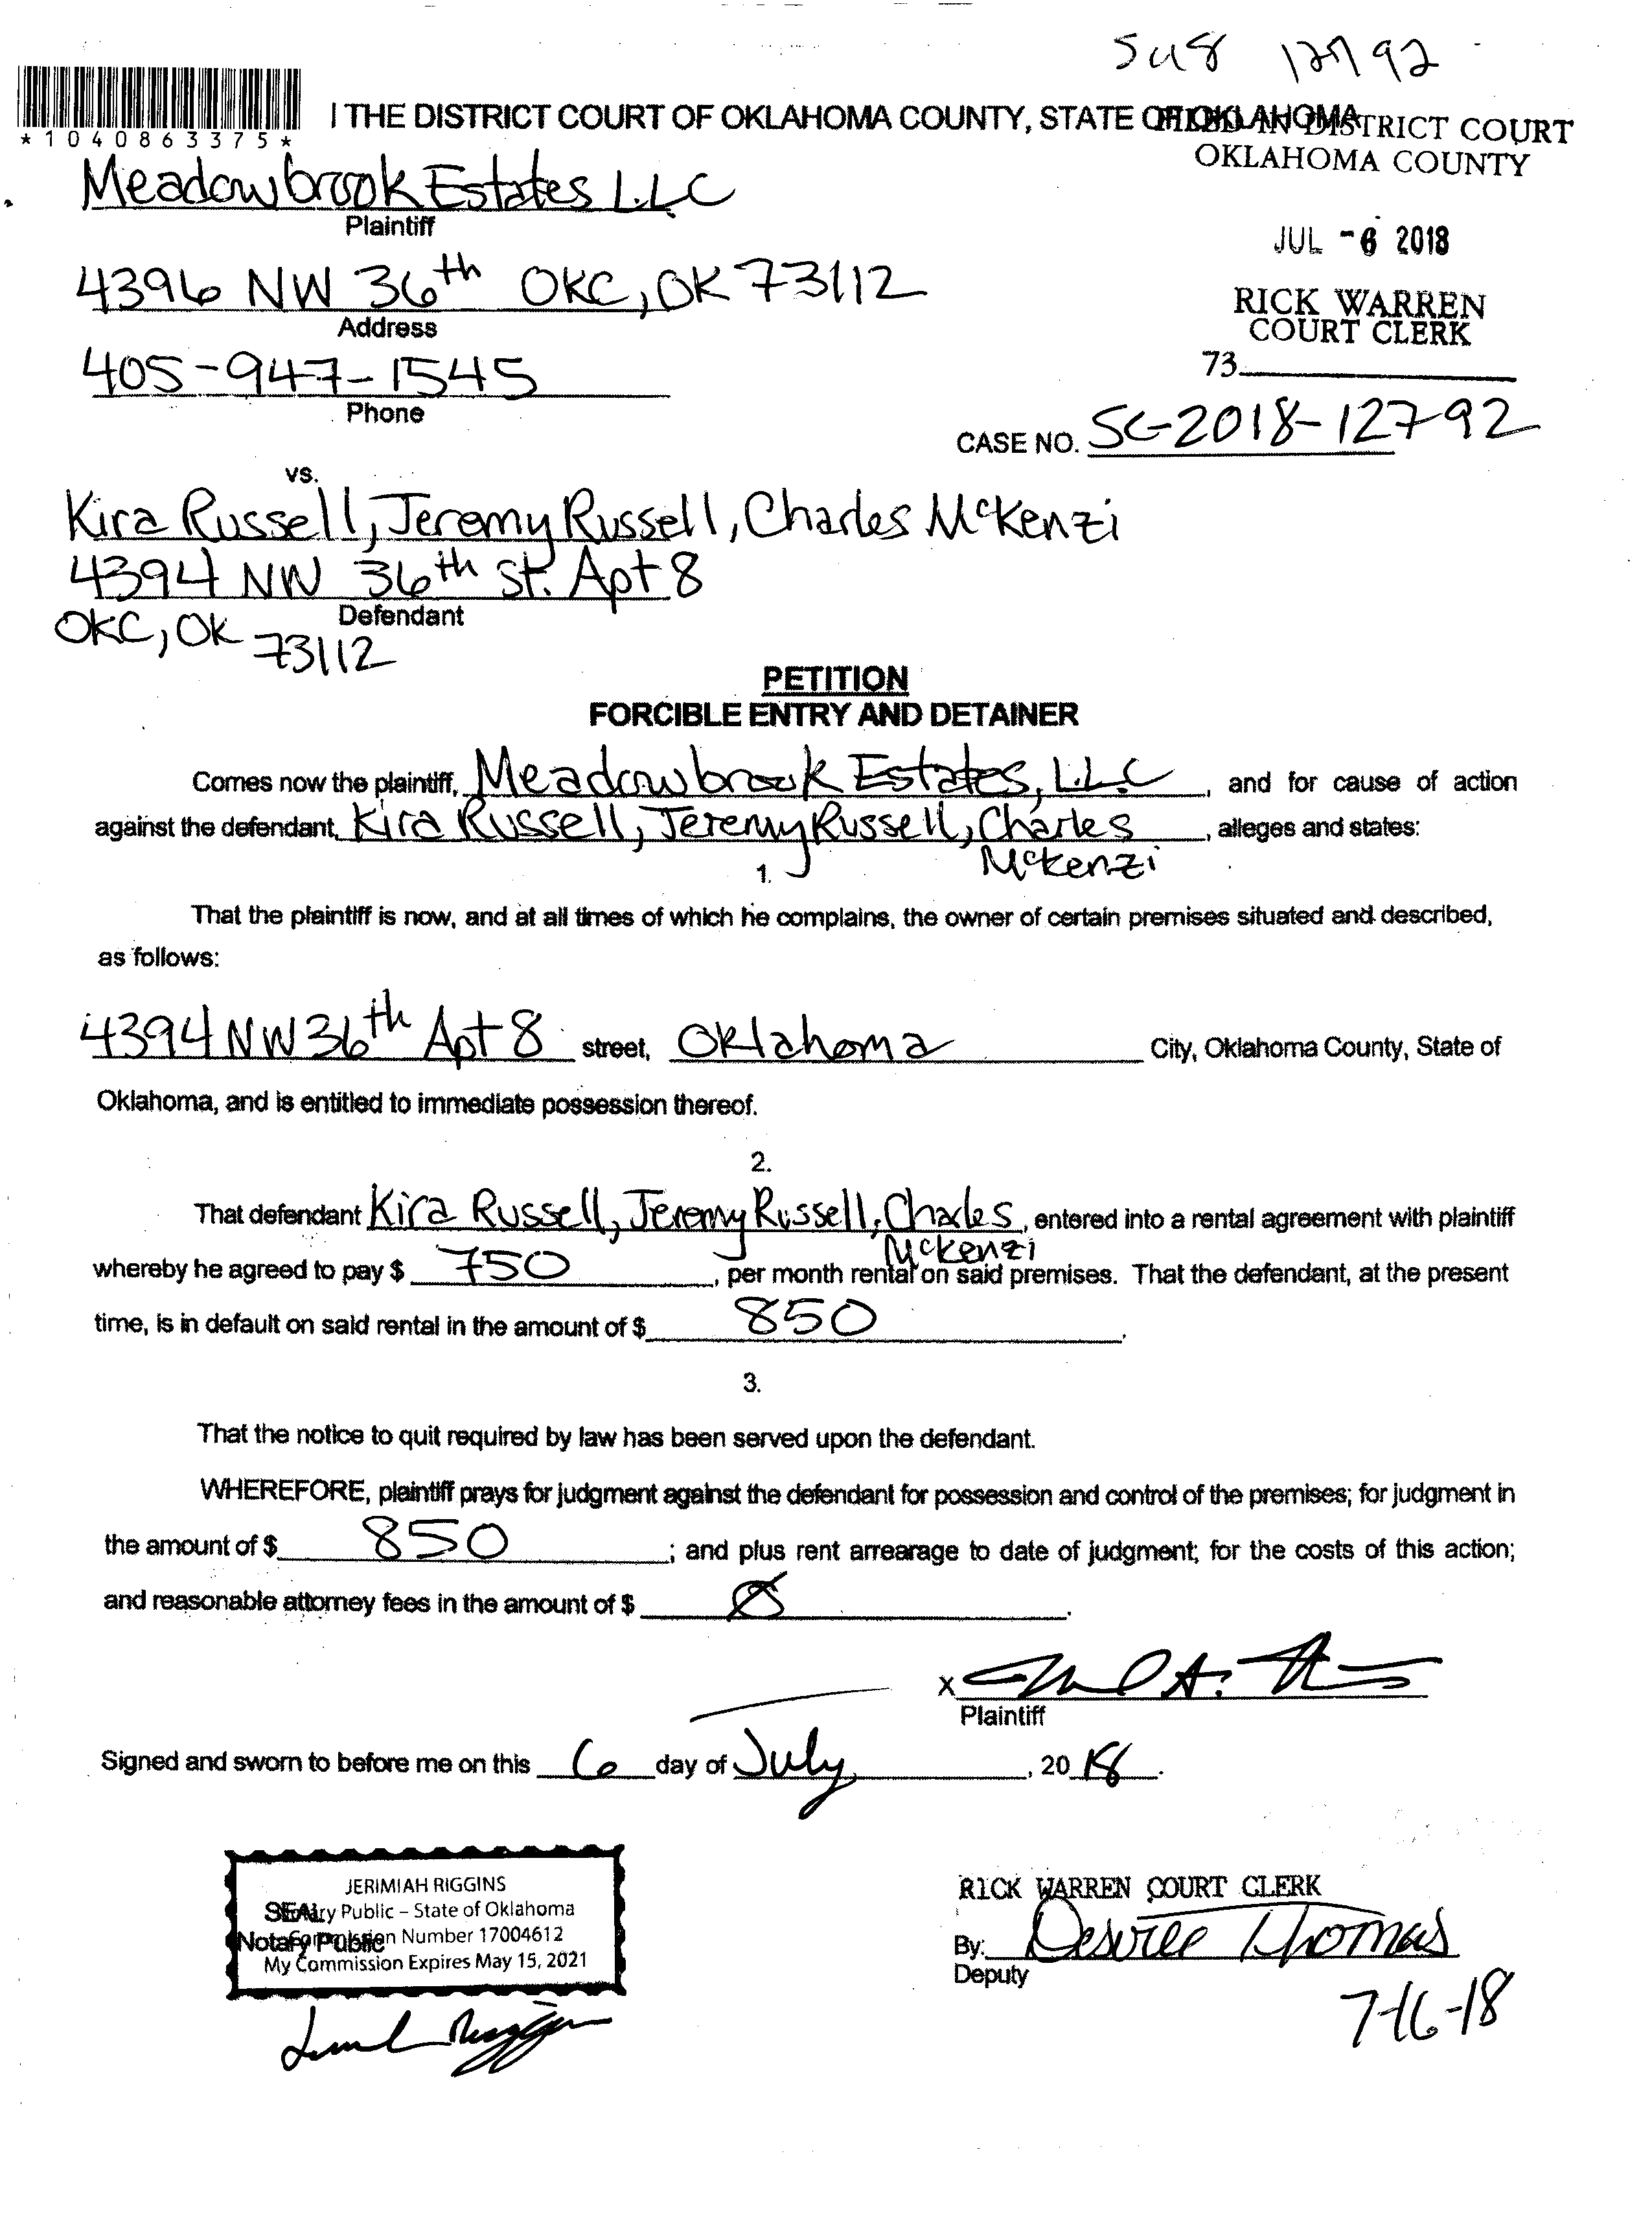 SC18 12792
*1040863375*
I THE DISTRICT COURT OF OKLAHOMA COUNTY, STATE OF OKLAHOMA
FILED IN DISTRICT COURT
OKLAHOMA COUNTY
Meadowbrook Estates LLC
Plaintiff
JUL -6 2018
4396 NW 36th OKC, OK 73112
Address
RICK WARREN
COURT CLERK
73
405-947-1545
Phone
CASE NO. SC-2018-12792
vs.
Kira Russell, Jeremy Russell, Charles McKenzi
4394 NW 36th St. Apt 8
Defendant
OKC, OK 73112
PETITION
FORCIBLE ENTRY AND DETAINER
Comes now the plaintiff, Meadowbrook Estates, LLC, and for cause of action
against the defendant, Kira Russell, Jeremy Russell, Charles McKenzi, alleges and states:
1.
That the plaintiff is now, and at all times of which he complains, the owner of certain premises situated and described,
as follows:
4394 NW 36th Apt 8 street, Oklahoma City, Oklahoma County, State of
Oklahoma, and is entitled to immediate possession thereof.
2.
That defendant Kira Russell, Jeremy Russell, Charles McKenzi, entered into a rental agreement with plaintiff
whereby he agreed to pay $ 750, per month rental on said premises. That the defendant, at the present
time, is in default on said rental in the amount of $ 850.
3.
That the notice to quit required by law has been served upon the defendant.
WHEREFORE, plaintiff prays for judgment against the defendant for possession and control of the premises; for judgment in
the amount of $ 850; and plus rent arrearage to date of judgment; for the costs of this action;
and reasonable attorney fees in the amount of $ Ø.
X
Plaintiff
Signed and sworn to before me on this 6 day of July, 2018.
JERIMIAH RIGGINS
SEAL Notary Public – State of Oklahoma
Notary Public Commission Number 17004612
My Commission Expires May 15, 2021
RICK WARREN COURT CLERK
By: Desiree Thomas
Deputy
7-16-18